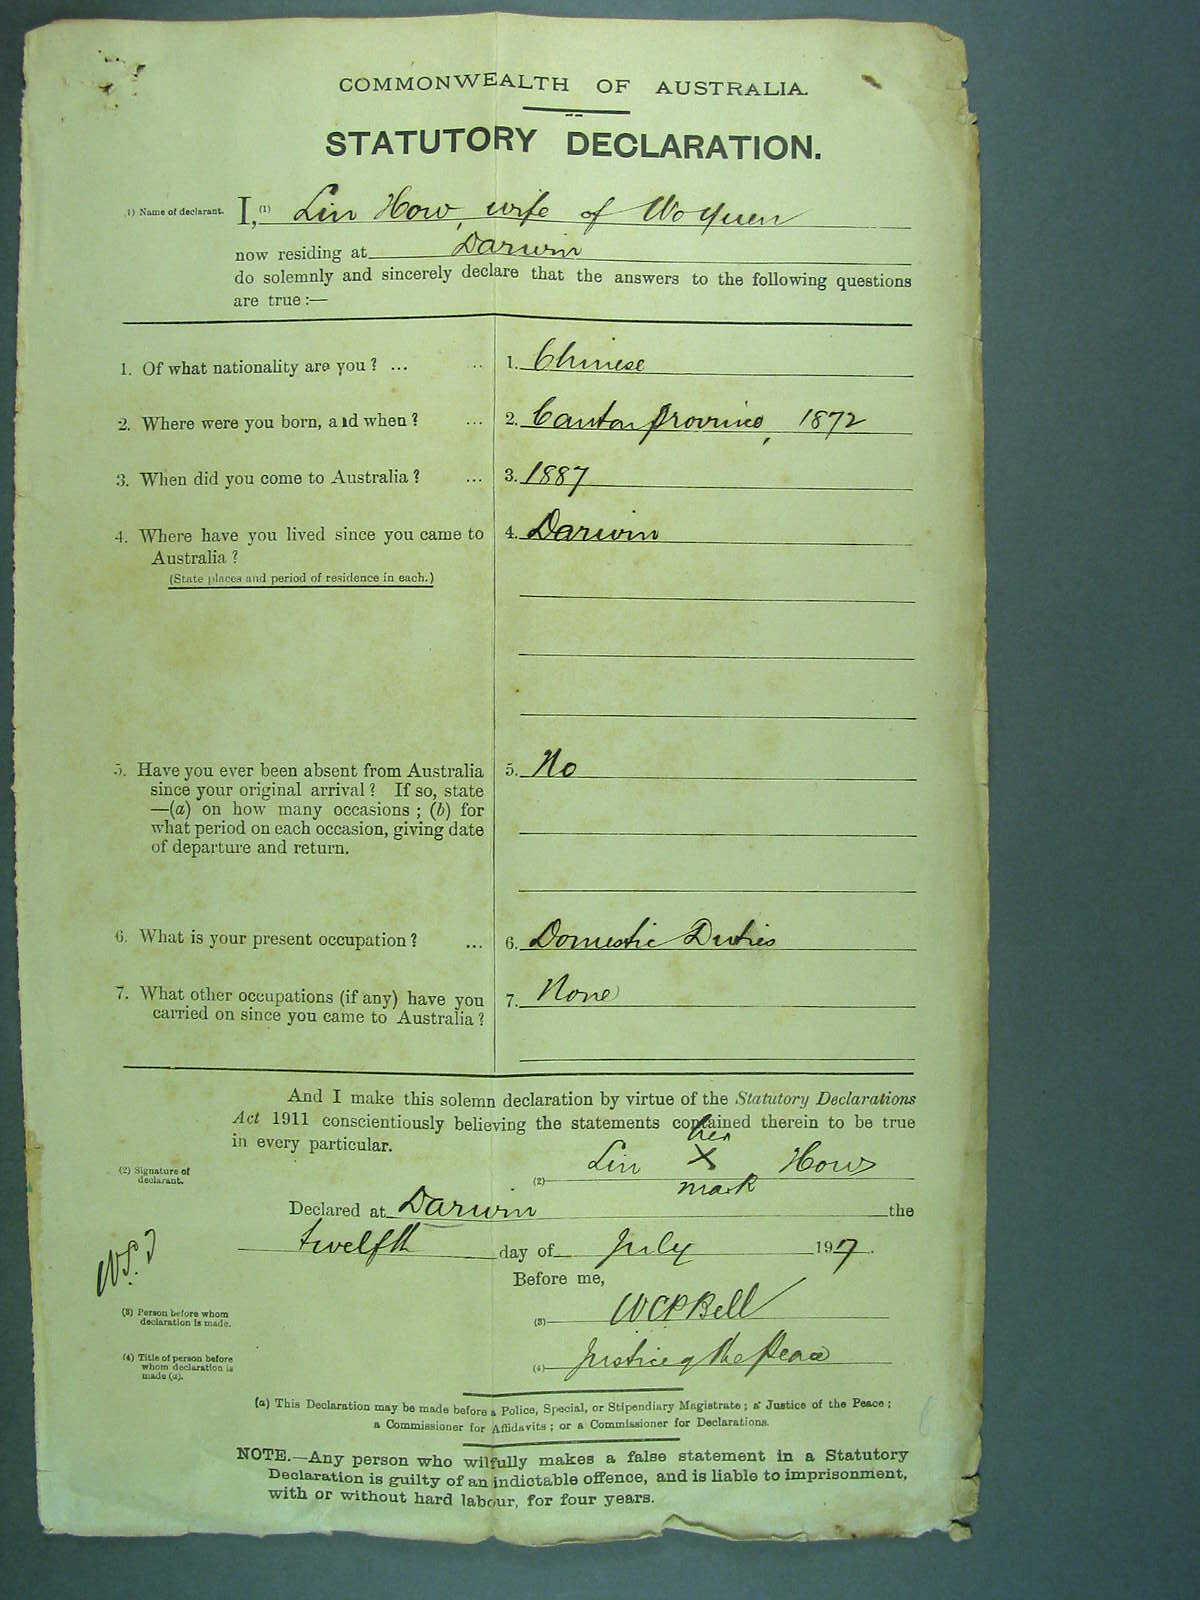 COMMONWEALTH OF AUSTRALIA.
STATUTORY DECLARATION.
(1) Name of declarant.
I, (1) Lin How, wife of Wo Yuen
now residing at Darwin
do solemnly and sincerely declare that the answers to the following questions
are true :—
1. Of what nationality are you ? ...
1. Chinese
2. Where were you born, and when ? ...
2. Canton province, 1872
3. When did you come to Australia ? ...
3. 1887
4. Where have you lived since you came to
Australia ?
(State places and period of residence in each.)
4. Darwin
5. Have you ever been absent from Australia
since your original arrival ? If so, state
—(a) on how many occasions ; (b) for
what period on each occasion, giving date
of departure and return.
5. No
6. What is your present occupation ? ...
6. Domestic Duties
7. What other occupations (if any) have you
carried on since you came to Australia ?
7. None
And I make this solemn declaration by virtue of the Statutory Declarations
Act 1911 conscientiously believing the statements contained therein to be true
in every particular.
her
(2) Signature of
declarant.
(2) Lin X How
mark
Declared at Darwin the
twelfth day of July 1917.
Before me,
(3) Person before whom
declaration is made.
(3) WCPBell
(4) Title of person before
whom declaration is
made (a).
(4) Justice of the Peace
(a) This Declaration may be made before a Police, Special, or Stipendiary Magistrate ; a Justice of the Peace ;
a Commissioner for Affidavits ; or a Commissioner for Declarations.
NOTE.—Any person who wilfully makes a false statement in a Statutory
Declaration is guilty of an indictable offence, and is liable to imprisonment,
with or without hard labour, for four years.